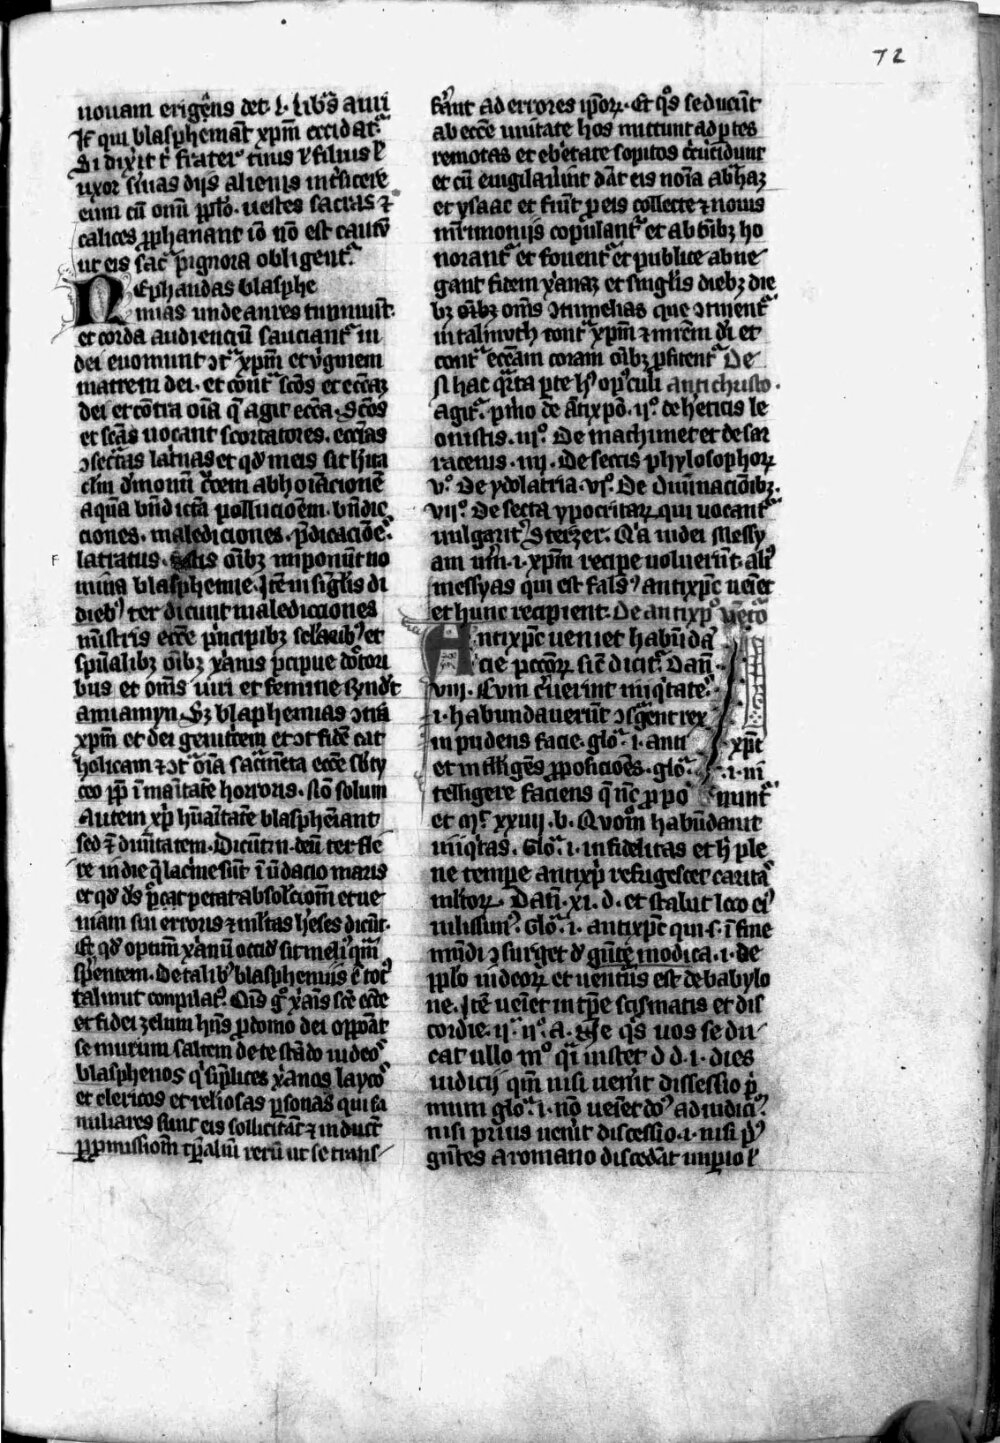 72
nouam erigēns det. l. librs auri
Jt qui blasphemāt xp̄m occidat᷑.
Si dixit t' frater tuus l' filius l'
uxor s'uias dijs alienis int'ficere
eum cū om̄i pp̄lo. uestes sacras ⁊
calices p̱phanant iō nō est cautū
ut eis sac᷑ pignora obligent᷑.
Nephandas blasphe
mias unde aures tinniūt.
et corda audienciū sauciant᷑ in
dei euomunt ↄt᷑ xp̄m et v'ginem
matrem dei. et cont᷑ sc̄os et ecc̄az
dei et cōtra oīa q̄ agit ecc̄a. Sc̄os
et sc̄as uocant scortatores. ecc̄ias
ↄsec᷑tas lat'nas et qd' meis sit
aqua bn̄dicta pollucioēm. bn̄dic
ciones. malediciones. p̄dicacioēs
latratus. oībz imponūt no
mina blasphemie. Jtē in sīglis di
dieb' ter dicunt maledictiones
mīstris ecc̄e p'ncipibz sc'larib' et
sp̄ualibz oībz xānis p̄cipue doctori
bus et om̄s uiri et femine
amiamyn. Sz blaphemias ↄtra
xp̄m et dei genitcem et ↄt᷑ fidē cat
holicam ⁊ ↄt᷑ oīa sac᷑mēta ecc̄e
horroris. Nō solum
Autem xp̄i hūaītatē blasphēiant
sed ⁊ diuītatem. Dicūt n. deū ter fle
re in die q̄ lac'me
et qd' ds p̄cat᷑ petat absolcōm et ue
niam sui erroris ⁊ m'ltas h'eses dicūt.
Et qd' optim̄ xānū occid' sit meli' qm̄
s'pentem. De talib' blasphemijs ē tot'
talmut conpilat'. Qīs g° xān's sc̄e ecc̄e
et fidei zelum hn̄s p̱ domo dei opponat
se murum saltem de testādo iudeos
blasphenos q' sīplices xānos laycos
et clericos et reliosas p̱sonas qui fa
miliares sunt eis sollicitāt ⁊ inducūt
p̱ p̱missionē tp̄aliū rerū ut se trans
ferant ad errores ip̄orꝝ. Et q°s seducūt
ab ecc̄e unitate hos mittunt ad p̱tes
remotas et ebrietate sopitos
et cū euigilauerint dāt eis noīa abrhaz
et ysaac et fiūt p̱ eis collecte ⁊ nouis
m'rimonijs copulant᷑ et ab oībz ho
norant᷑ et fouent᷑ et publice abne
gant fidem xānaz et singlis diebz die
bz oībz om̄s ↄtumelias que ↄtinent᷑
in talmuth cont᷑ xp̄m ⁊ m̄rem d'i et
cont᷑ ecc̄am coram oībz p̱fitent᷑ De
Jn hac q᷑rta p̱te h' op'culi antichristo.
agit᷑. p'mo de ātixpō. ij°. de h'eticis le
onistis. iij°. De machumet et de sar
racenis. iiij. De sectis phylosophorꝝ
v°. De ydolatria. vj°. De diuinacōibz.
vij°. De secta ypocritarꝝ qui uocant᷑
uulgarit' Sterzer. Q'a iudei Messy
am u'm. i. xp̄m recipe noluerūt. ali'
messyas qui est fals' antixpc̄ ueīet
et hunc recipient. De antixp° uēt'o
Antixpc̄ ueniet habūda
cie pc̄cōrꝝ sic̄ dicit᷑. Dan̄.
viij. Cum c'uerint iniq'tates
i. habundauerūt ↄs'gent rex
inpudens facie. glo᷑. i. anti xp̄c
et intelligēs p̱posicioēs. glo᷑. i. in
telligere faciens q̄ nc̄ p̱ponunt᷑
et m᷑. xxiiij. b. Quoniam habūdauit
iniq'tas. Glo᷑. i. infidelitas et h' ple
ne tempe antixp̄i refugescet caritas
m'ltorꝝ. Dan̄. xi. d. et stabit loco ei'
uilissim'. Glo᷑. i. antixpc̄ qui. s. ī fine
mūdi ↄsurget d' gente modica. i. de
pp̄lo iudeorꝝ et uentur's est de babylo
ne. Jtē ueīet in tp̄e scismatis et dis
cordie. ij᷑. ij°. a. Ne q's uos sedu
cat ullo m° q'i instet d d. i. dies
iudicij qm̄ nisi uen'it dissessio p'
mum glo᷑. i. nō ueīet do' ad iudiciū.
nisi prius uen'it discessio. i. nisi p'
gentes a romano discedāt imperio l'